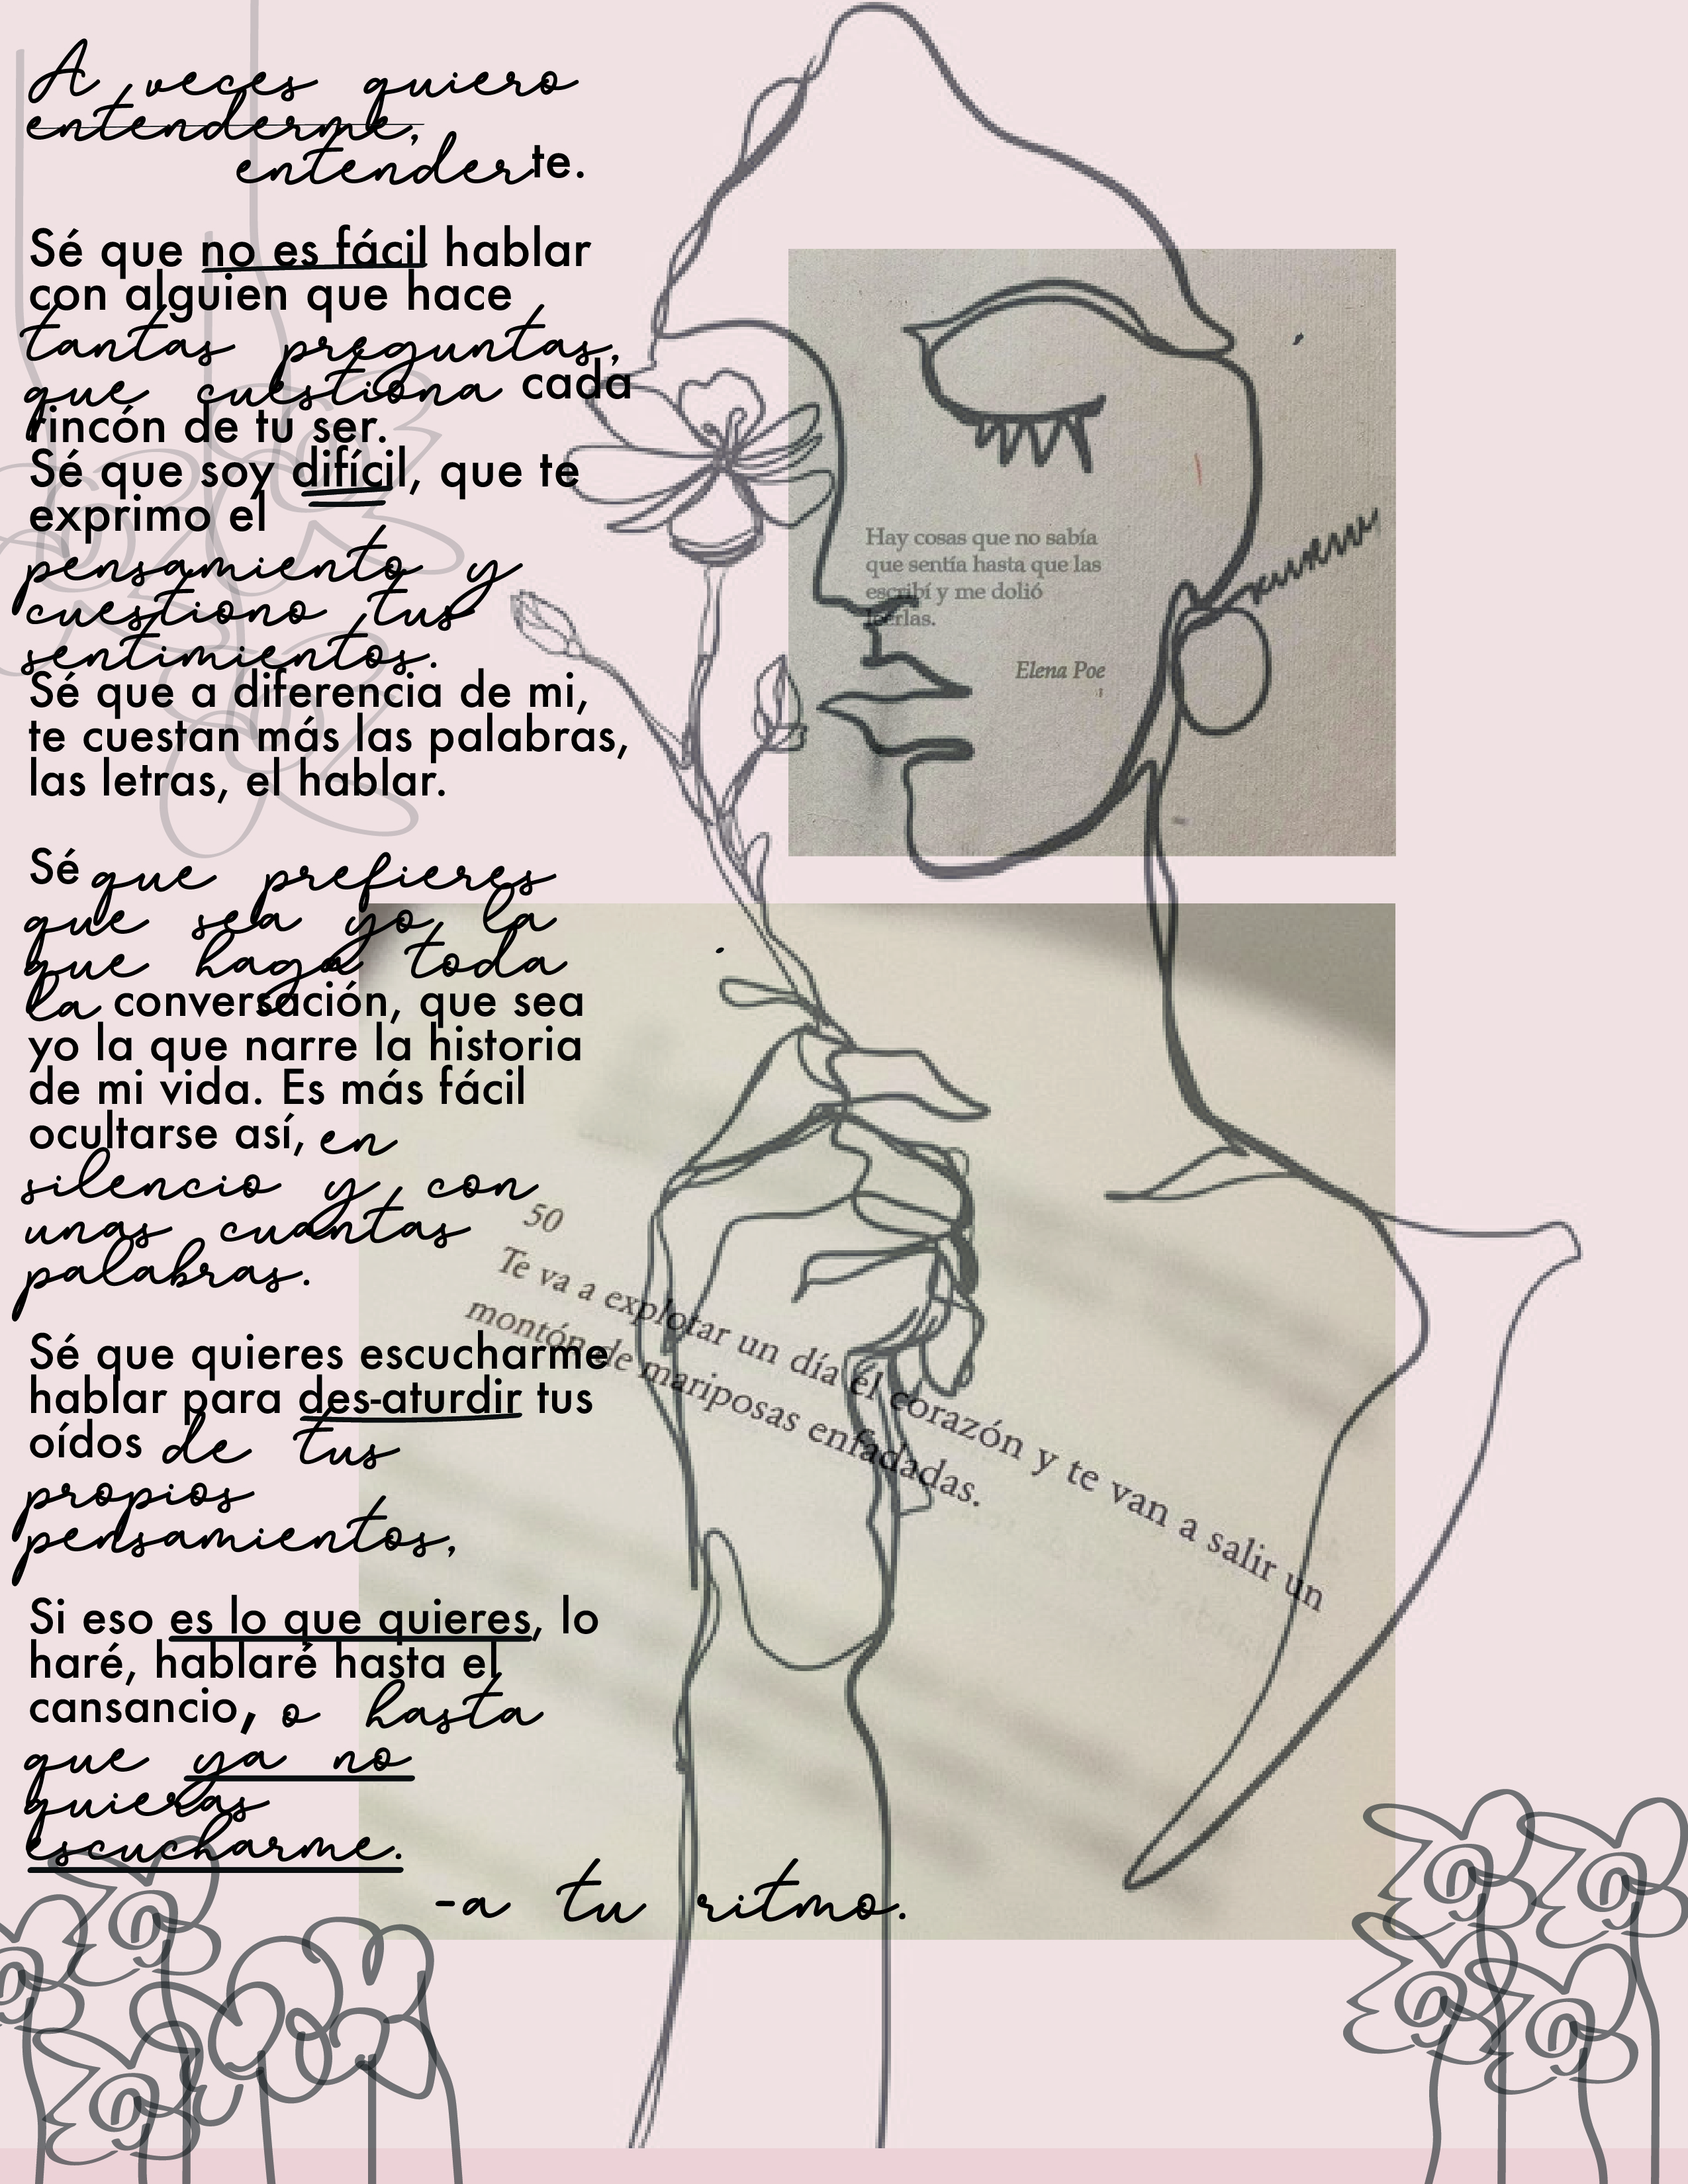 A veces quiero
entenderme,
entenderte.
Sé que no es fácil hablar
con alguien que hace
tantas preguntas,
que cuestiona cada
rincón de tu ser.
Sé que soy difícil, que te
exprimo el
pensamiento y
cuestiono tus
sentimientos.
Sé que a diferencia de mi,
te cuestan más las palabras,
las letras, el hablar.
Sé que prefieres
que sea yo la
que haga toda
la conversación, que sea
yo la que narre la historia
de mi vida. Es más fácil
ocultarse así, en
silencio y con
unas cuantas
palabras.
Sé que quieres escucharme
hablar para des-aturdir tus
oídos de tus
propios
pensamientos,
Si eso es lo que quieres, lo
haré, hablaré hasta el
cansancio, o hasta
que ya no
quieras
escucharme.
-a tu ritmo.
Hay cosas que no sabía
que sentía hasta que las
escribí y me dolió
leerlas.
Elena Poe
50
Te va a explotar un día el corazón y te van a salir un
montón de mariposas enfadadas.